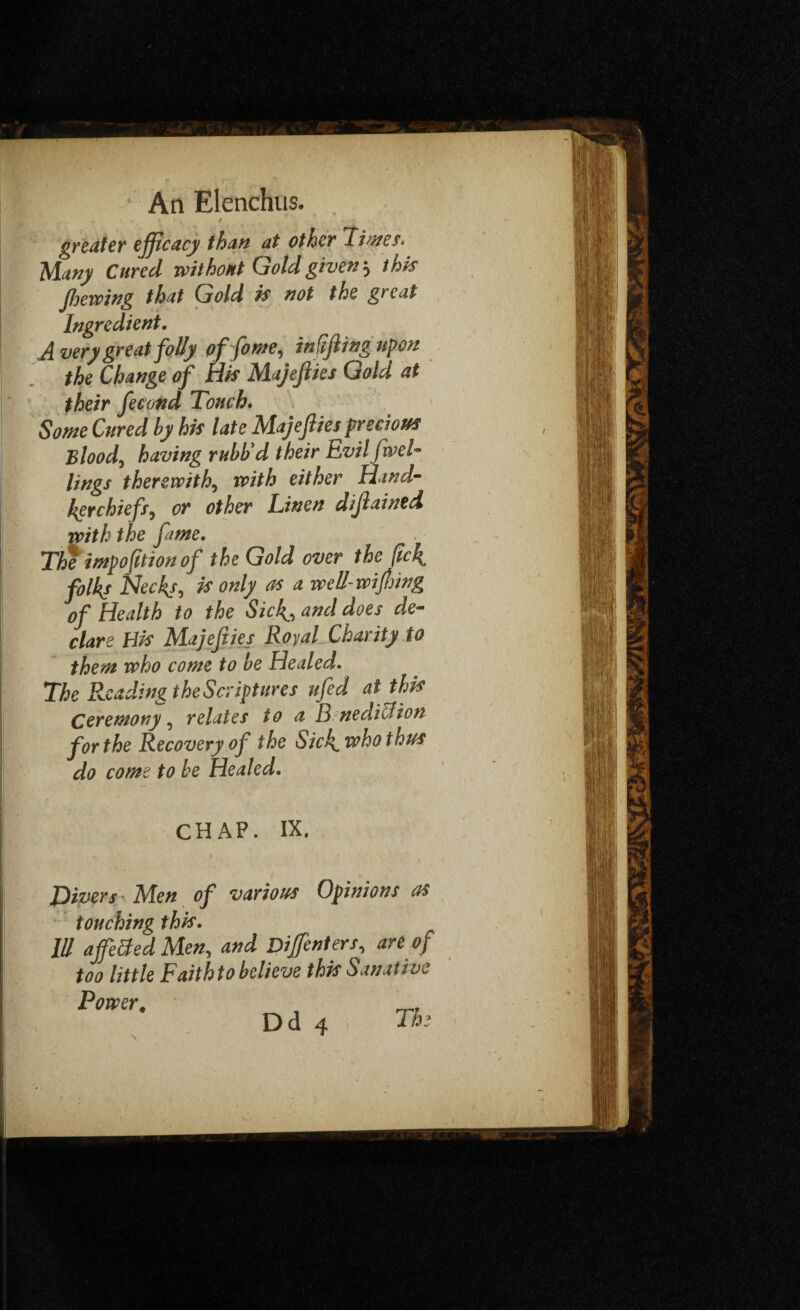 An Elenchus.
greater efficacy than at other Times.
Many Cured without Gold given; this
ſhewing that Gold is not the great
Ingredient.
A very great folly of ſome, inſiſting upon
the Change of His Majeſties Gold at
their ſecond Touch.
Some Cured by his late Majeſties precious
Blood, having rubb'd their Evil ſwel-
lings therewith, with either Hand-
kerchiefs, or other Linen diſtained
with the ſame.
The impoſition of the Gold over the ſick
folks Necks, is only as a well-wiſhing
of Health to the Sick, and does de-
clare His Majeſties Royal Charity to
them who come to be Healed.
The Reading the Scriptures uſed at this
Ceremony, relates to a B nediction
for the Recovery of the Sick who thus
do come to be Healed.
CHAP. IX.
Divers Men of various Opinions as
touching this.
Ill affected Men, and Diſſenters, are of
too little Faith to believe this Sanative
Power.
Dd 4 The